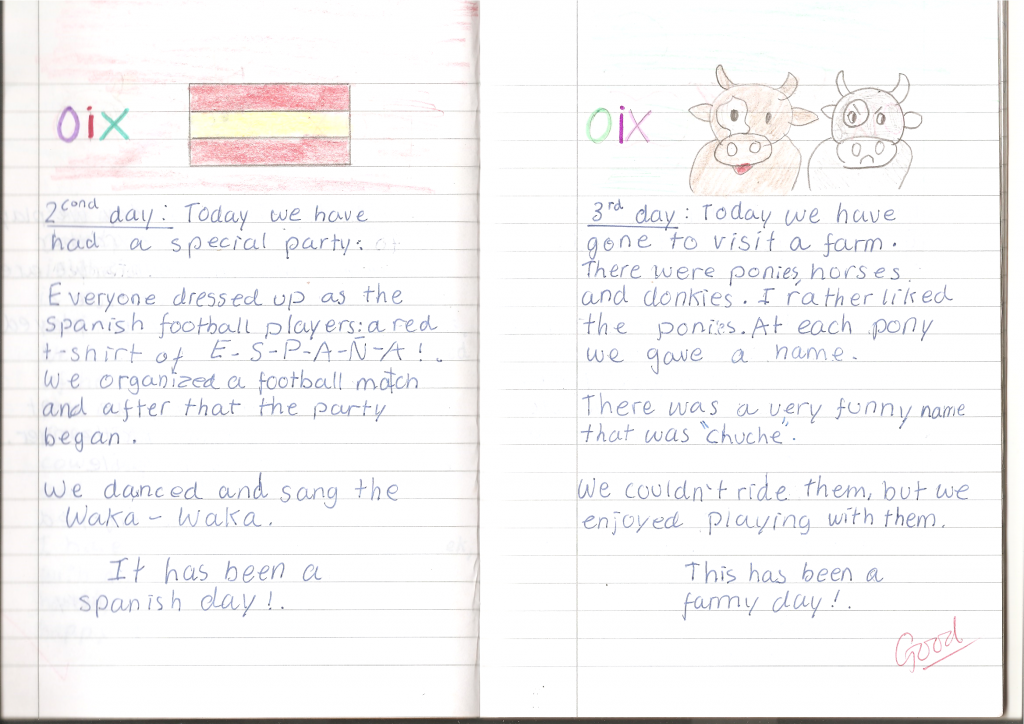 oix
2cond day: Today we have
had a special party:
Everyone dressed up as the
spanish football players: a red
t-shirt of E-S-P-A-Ñ-A!.
We organized a football match
and after that the party
began.
We danced and sang the
Waka-Waka.
It has been a
spanish day!.
oix
3rd day: Today we have
gone to visit a farm.
There were ponies, horses
and donkies. I rather liked
the ponies. At each pony
we gave a name.
There was a very funny name
that was "Chuche".
We couldn't ride them, but we
enjoyed playing with them.
This has been a
farmy day!.
Good